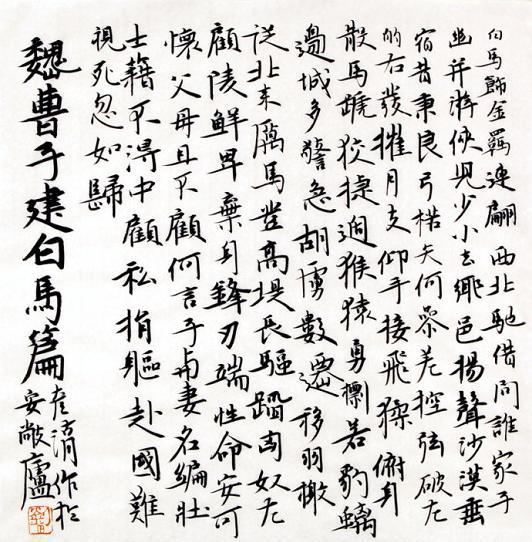 白馬飾金羈連翩西北馳借問誰家子
幽并游俠兒少小去鄉邑揚聲沙漠垂
宿昔秉良弓楛矢何參差控弦破左
的右發摧月支仰手接飛猱俯身
散馬蹄狡捷過猴猿勇剽若豹螭
邊城多警急胡虜數遷移羽檄
從北來厲馬登高堤長驅蹈匈奴左
顧陵鮮卑棄身鋒刃端性命安可
懷父母且不顧何言子與妻名編壯
士籍不得中顧私捐軀赴國難
視死忽如歸
魏曹子建白馬篇
作於
安敞廬